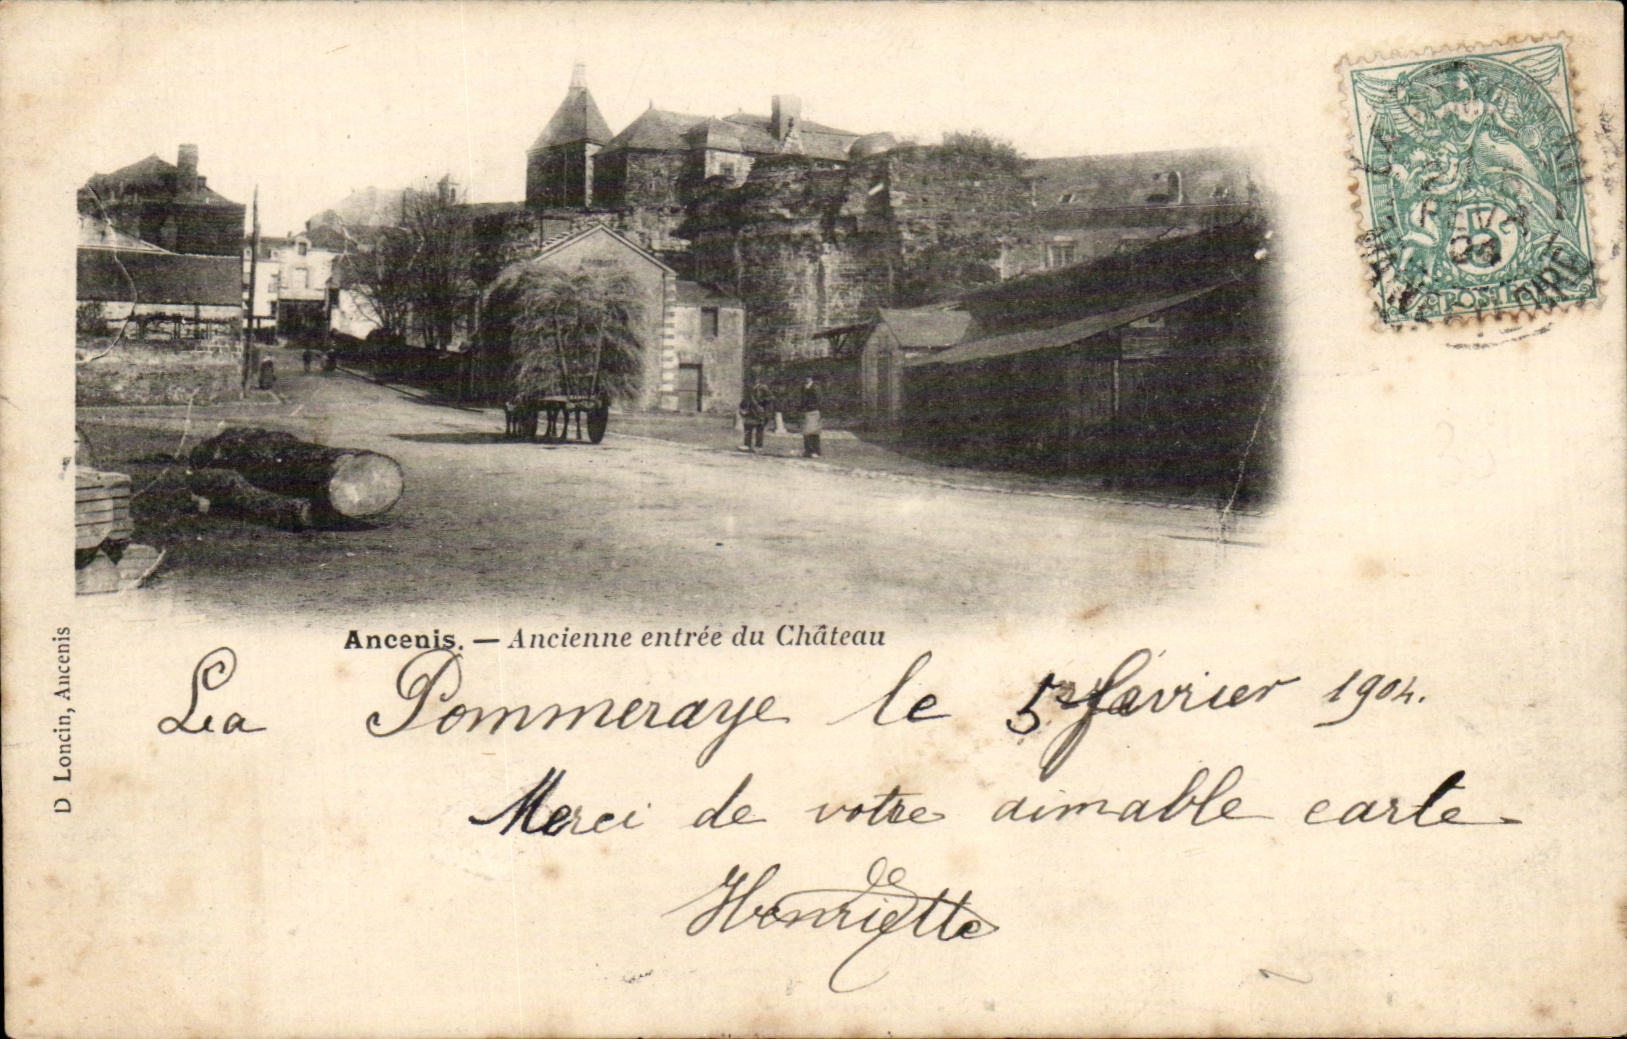 Ancenis. — Ancienne entrée du Château
D. Loncin, Ancenis
La Pommeraye le 5 février 1904.
Merci de votre aimable carte
Henriette
5
POSTES